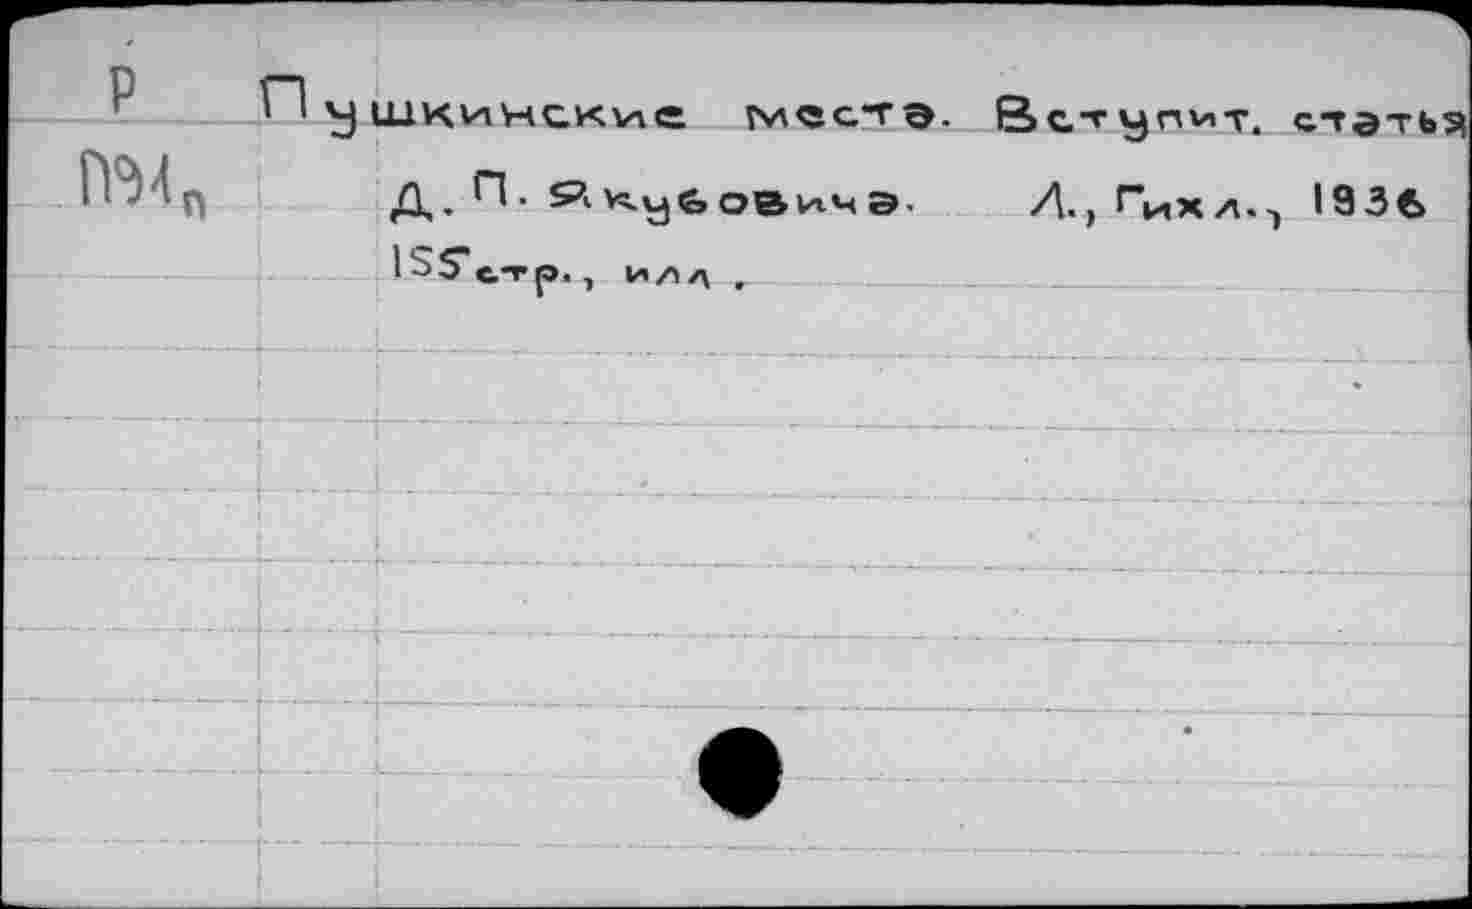 Р Пушкинские места. Вступит. статья
П91п Д. П. Якубовича. Л., Гихл., 1936
155 стр., илл.